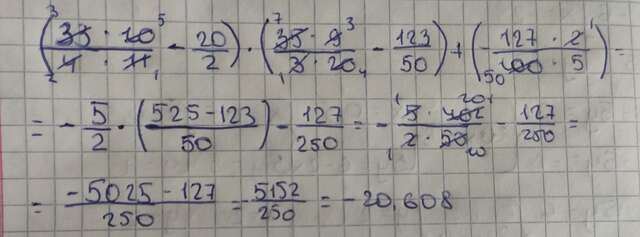 (³33 · 10⁵ / ₂4 · 11₁ - 20/2) · (⁷35 · 9³ / ₁3 · 20₄ - 123/50) + (- 127 · 2¹ / ₅₀100 · 5) =
= - 5/2 · (525 - 123 / 50) - 127/250 = - ¹5 · 402²⁰¹ / ₁2 · 50₁₀ - 127/250 =
= -5025 - 127 / 250 = - 5152/250 = -20,608